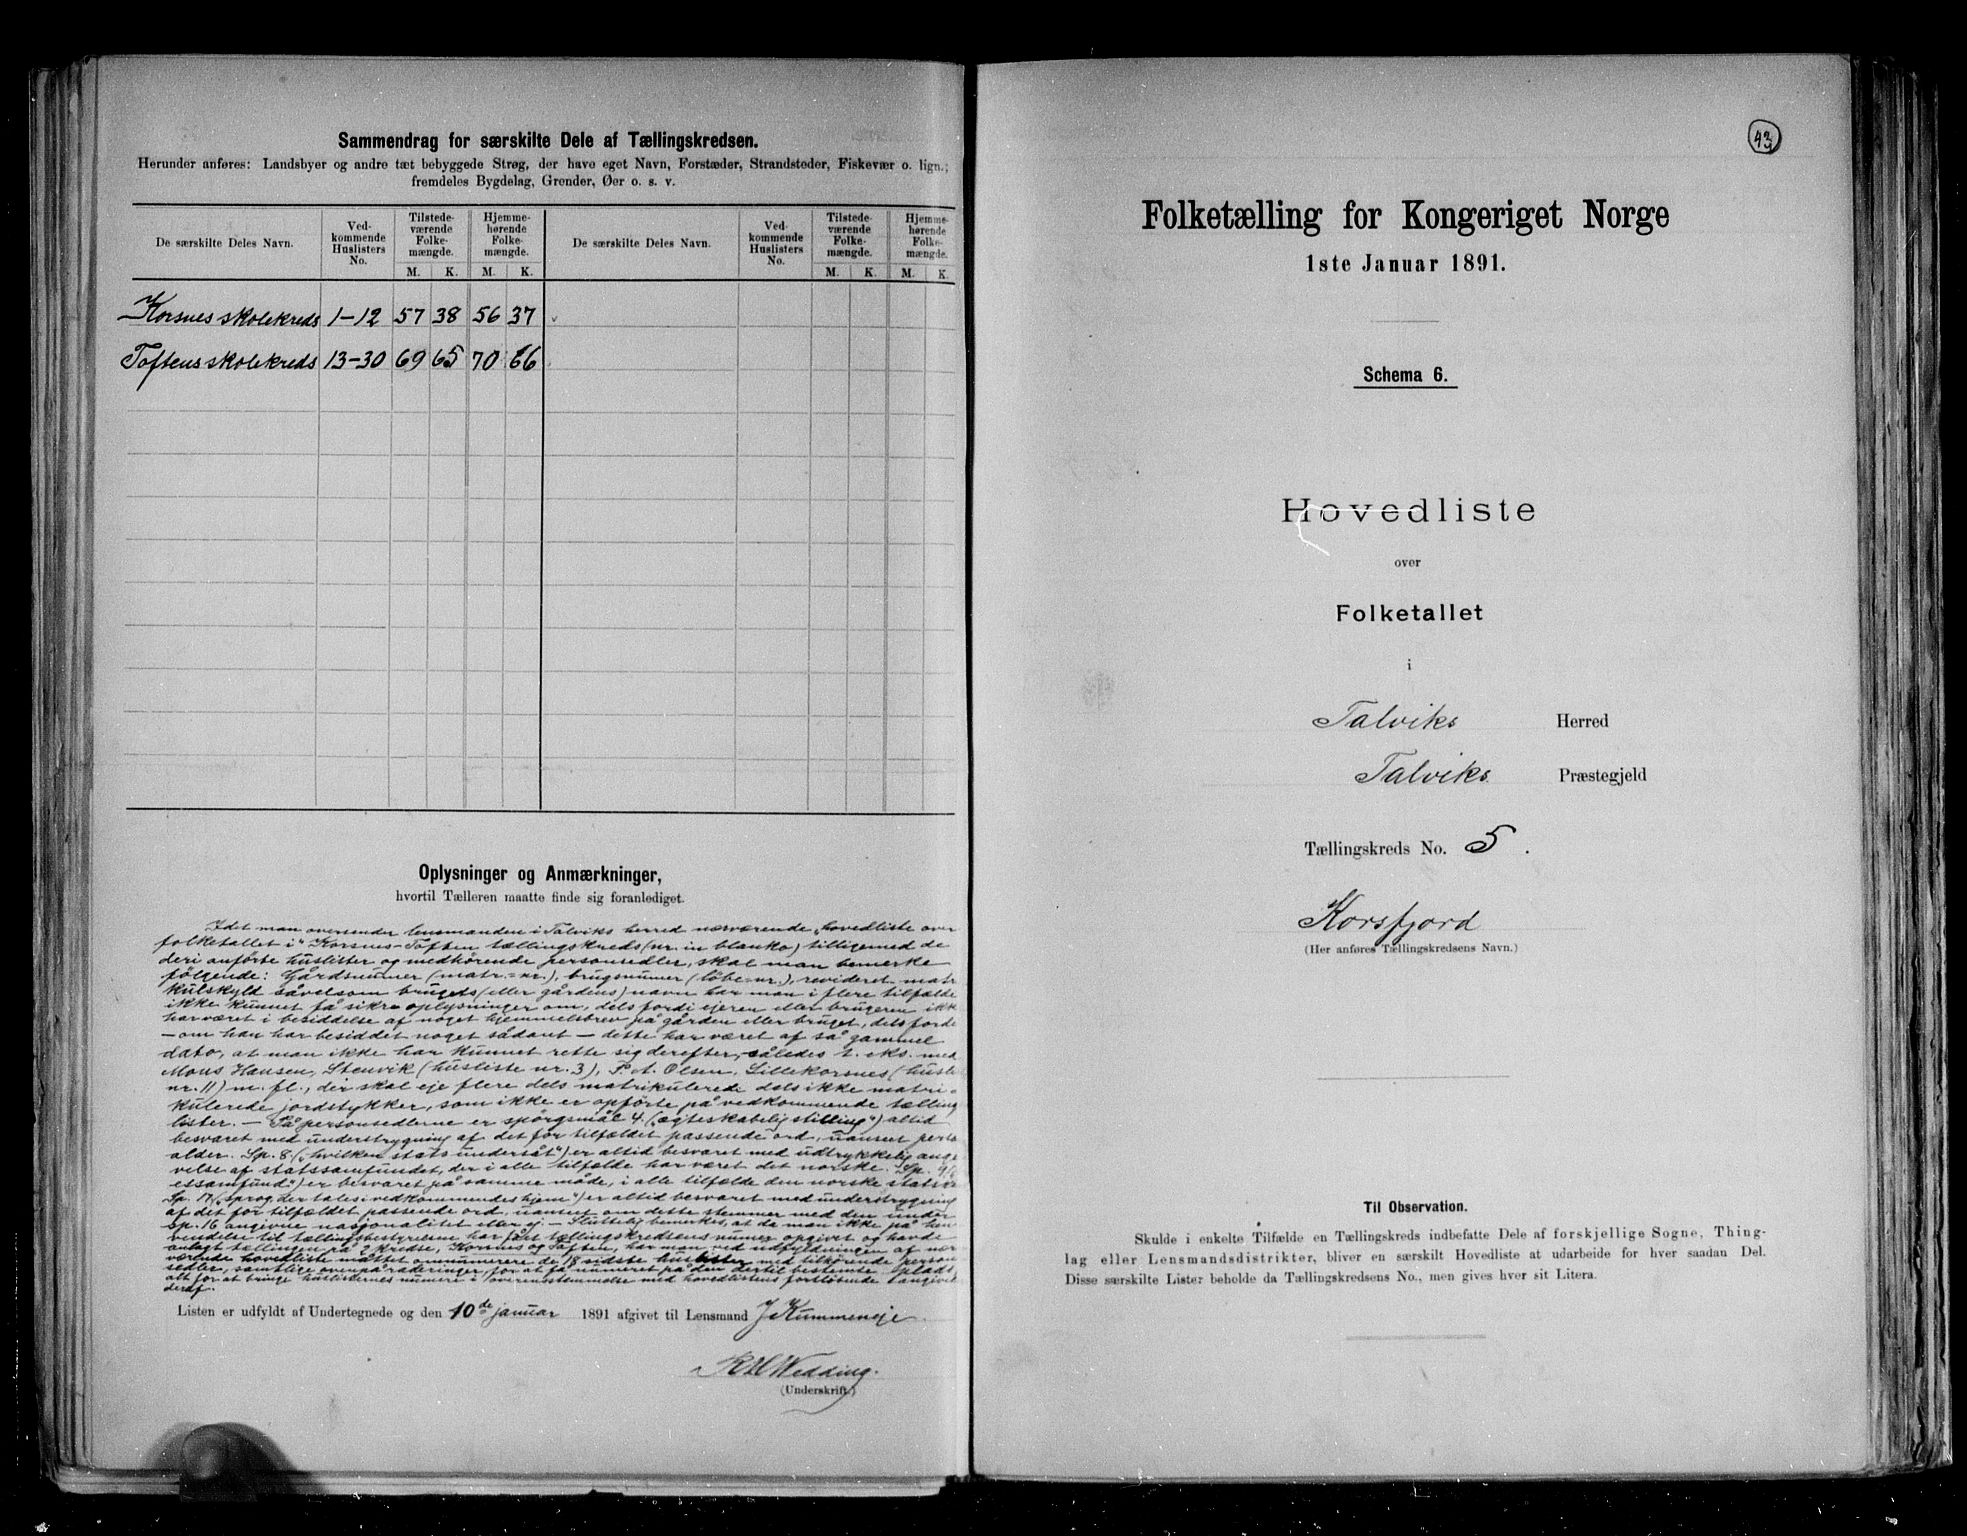 Sammendrag for særskilte Dele af Tællingskredsen.
Herunder anføres: Landsbyer og andre tæt bebyggede Strøg, der have eget Navn, Forstæder, Strandsteder, Fiskevær o. lign.;
fremdeles Bygdelag, Grender, Øer o. s. v.
De særskilte Deles Navn. Ved-kommende Huslisters No. Tilstede-værende Folke-mængde. Hjemme-hørende Folke-mængde. De særskilte Deles Navn. Ved-kommende Huslisters No. Tilstede-værende Folke-mængde. Hjemme-hørende Folke-mængde.
M. K. M. K. M. K. M. K.
Korsnes skolekreds 1-12 57 38 56 37
Toftens skolekreds 13-30 69 65 70 66
Oplysninger og Anmærkninger,
hvortil Tælleren maatte finde sig foranlediget.
Idet man oversender lensmanden i Talviks herred nærværende „hovedliste over
folketallet i" Korsnes-Toften tællingskreds (nr. in blanko) tilligemed de
deri anførte huslister og medhørende personsedler, skal man bemærke
følgende: Gårdsnumer (matr.=nr.), brugsnumer (løbe-nr.), revideret matr
kulskyld såvelsom brugets (eller gårdens) navn har man i flere tilfælde
ikke kunnet få sikre oplysninger om, dels fordi ejeren eller brugeren ikk
har været i besiddelse af noget hjemmelsbrev på gården eller bruget, dels forde
- om han har besiddet noget sådant - dette har været af så gammel
dato, at man ikke har kunnet rette sig derefter, således t. eks. med
Mons Hansen, Stenvik (husliste nr. 3), P. A. Olsen, Lillekorsnes (husli
nr. 11) m. fl., der skal eje flere dels matrikulerede dels ikke matri-
kulerede jordstykker, som ikke er opførte på vedkommende tælling
lister. - På personsedlerne er spørgsmål 4 („ægteskabelig stilling") altid
besvaret med understrygning af det for tilfældet passende ord, uanseet pers
alder. Sp. 8 („hvilken stats undersåt") er altid besvaret med udtrykkelig ang
velse af statssamfundet, der i alle tilfælde har været det norske. Sp. 9
essamfund") er besvaret på samme måde, i alle tilfælde den norske stats
Sp. 17 („Sprog, der tales i vedkommendes hjem") er altid besvaret med understrygning
af det for tilfældet passende ord, uanseet om dette stemmer med den under
sp. 16 angivne nasjonalitet eller ej. - Sluttelig bemærkes, at da man ikke på hen
vendelse til tællingsbestyrelsen har fået tællingskredsens numer opgivet og havde
anlagt tællingen på 2 kredse, Korsnes og Toften, har man ved udfyldningen af nær
værende hovedliste måttet omnumerere de 18 sidste huslister med tilhørende person
sedler, samtlige
alt for at bringe huslisternes numere i overensstemmelse med hovedlistens fortløbende
deraf.
Listen er udfyldt af Undertegnede og den 10de januar 1891 afgivet til Lensmand J Kummeneje
R H Wedding.
(Underskrift.)
43
Folketælling for Kongeriget Norge
1ste Januar 1891.
Schema 6.
Hovedliste
over
Folketallet
i
Talviks Herred
Talviks Præstegjeld
Tællingskreds No. 5.
Korsfjord
(Her anføres Tællingskredsens Navn.)
Til Observation.
Skulde i enkelte Tilfælde en Tællingskreds indbefatte Dele af forskjellige Sogne, Thing-
lag eller Lensmandsdistrikter, bliver en særskilt Hovedliste at udarbeide for hver saadan Del.
Disse særskilte Lister beholde da Tællingskredsens No., men gives hver sit Litera.